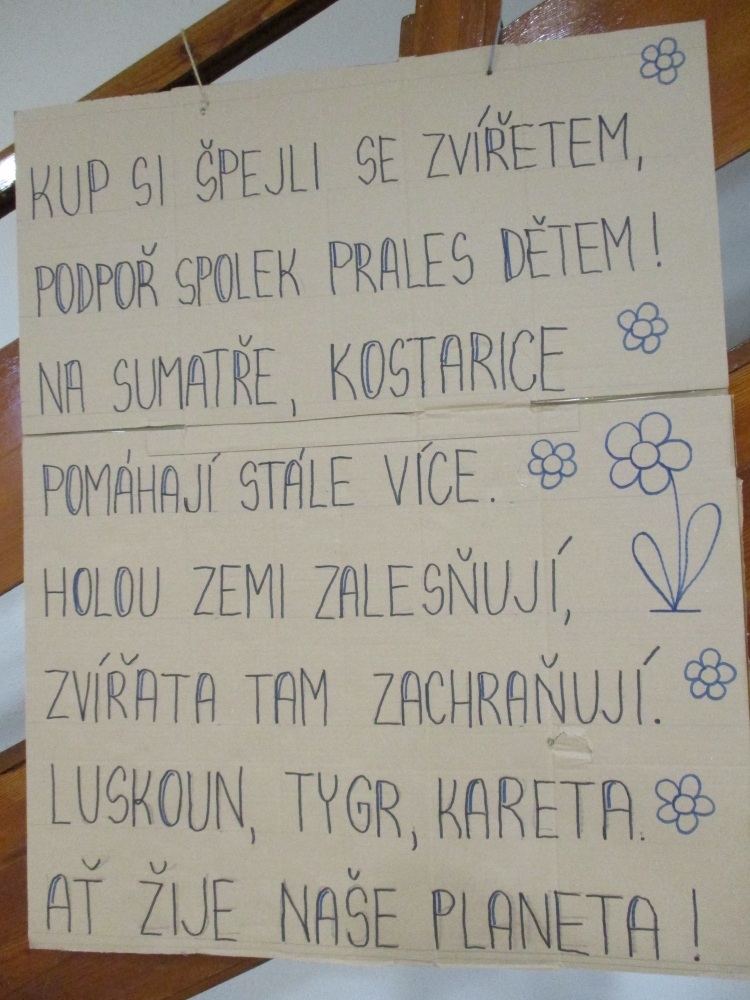 KUP SI ŠPEJLI SE ZVÍŘETEM,
PODPOŘ SPOLEK PRALES DĚTEM!
NA SUMATŘE, KOSTARICE
POMÁHAJÍ STÁLE VÍCE.
HOLOU ZEMI ZALESŇUJÍ,
ZVÍŘATA TAM ZACHRAŇUJÍ.
LUSKOUN, TYGR, KARETA.
AŤ ŽIJE NAŠE PLANETA!